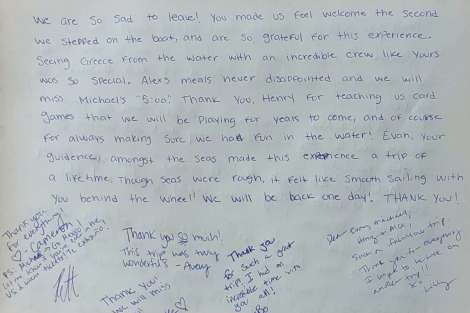 We are so sad to leave! You made us feel welcome the second
we stepped on the boat, and are so grateful for this experience.
Seeing Greece from the water with an incredible crew like yours
was so special. Alex's meals never disappointed and we will
miss Michael's "5:00". Thank you, Henry for teaching us card
games that we will be playing for years to come, and of course
for always making sure we had fun in the water! Evan, your
guidence, amongst the seas made this experience a trip of
a lifetime. Though seas were rough, it felt like smooth sailing with
you behind the wheel! We will be back one day! THANK YOU!
Thank you
for everything!
♡ Cameron!
Thank you so much!
This trip was very
wonderful - Avery
Thank you
for such a great
trip. I had an
incredible time with
you all!
Bo
Thank you
we will miss
Dear Evan, Michael,
Henry & Alex,
Such a fabulous trip.
Thank you for everything
I hope to be back on